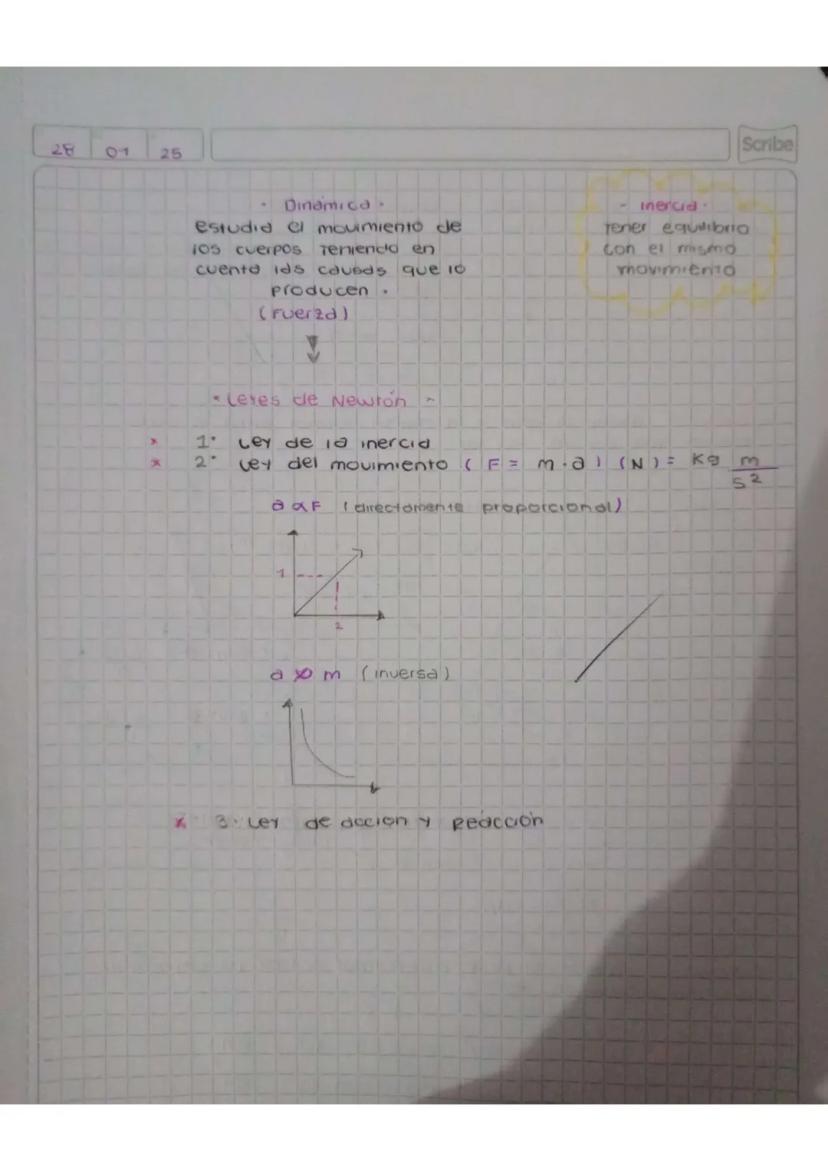 28 01 25
Scribe
- Dinámica -
estudia el movimiento de
los cuerpos teniendo en
cuenta las causas que lo
producen .
(Fuerza)
- inercia -
Tener equilibrio
con el mismo
movimiento
- Leyes de Newton -
* 1° Ley de la inercia
* 2° Ley del movimiento ( F = m · a ) (N) = Kg m/s²
a α F (directamente proporcional)
1
2
a m (inversa)
* 3. Ley de acción y Reacción